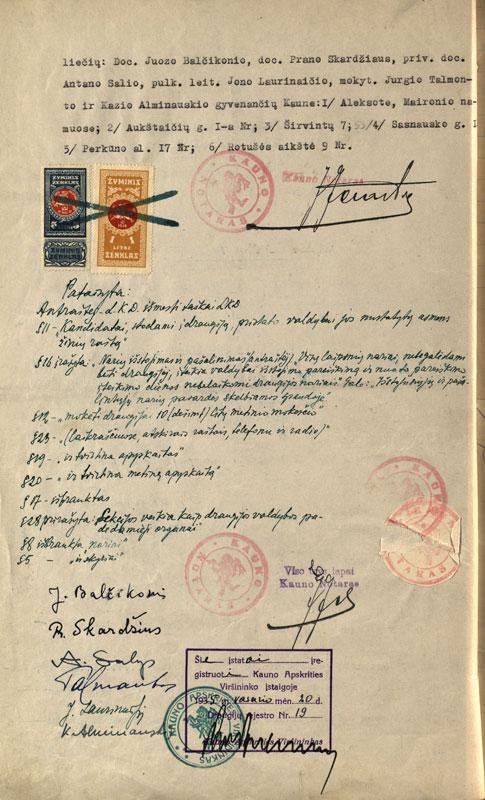 liečių: Doc. Juozo Balčikonio, doc. Prano Skardžiaus, priv. doc.
Antano Salio, pulk. leit. Jono Laurinaičio, mokyt. Jurgio Talmon-
to ir Kazio Alminauskio gyvenančių Kaune:1/ Aleksote, Maironio na-
muose; 2/ Aukštaičių g. I-a Nr; 3/ Širvintų 7; 4/ Sasnausko g. I
5/ Perkūno al. 17 Nr; 6/ Rotušės aikštė 9 Nr.
KAUNO NOTARAS
Kauno Notaras
ŽYMINIS ŽENKLAS
ŽYMINIS
LITAI
ŽENKLAS
ŽYMINIS ŽENKLAS
Pataisyta:
Antraštėj L.K.D. išmesti taškai LKD
§11 - Kandidatai, stodami į draugiją, pristato valdybai jos nustatytų asmens
žinių raštą"
§16 įrašyta: "Narių išstojimas ir pašalinimas (antraštėj)
būti draugijoj, įteikia valdybai išstojimo pareiškimą ir nuo to pareiškimo
įteikimo dienos nebelaikomi draugijos nariais
narių pavardės skelbiamos spaudoje"
"mokėti draugijai 10 (dešimt) litų metinio mokesčio"
§23 - "(laikraščiuose, atskirais raštais, telefonu ir radio)"
§19 - "ir tvirtina apyskaitas"
§20 - "ir tvirtina metinę apyskaitą"
§17 - išbrauktas
§28 prirašyta: Sekcijos veikia kaip draugijos valdybos pa-
dedamieji organai"
§8 išbraukta "nariai"
§5
KAUNO NOTARAS
KAUNO NOTARAS
Viso lapai
Kauno Notaras
J. Balčikonis
P. Skardžius
A. Salys
Talmantas
J. Laurinaitis
K. Alminauskis
Šie įstatai įre-
gistruoti Kauno Apskrities
Viršininko įstaigoje
1935 m. vasario mėn. 20 d.
Draugijų rejestro Nr. 19
KAUNO APSKRITIES VIRŠININKAS
Viršininkas